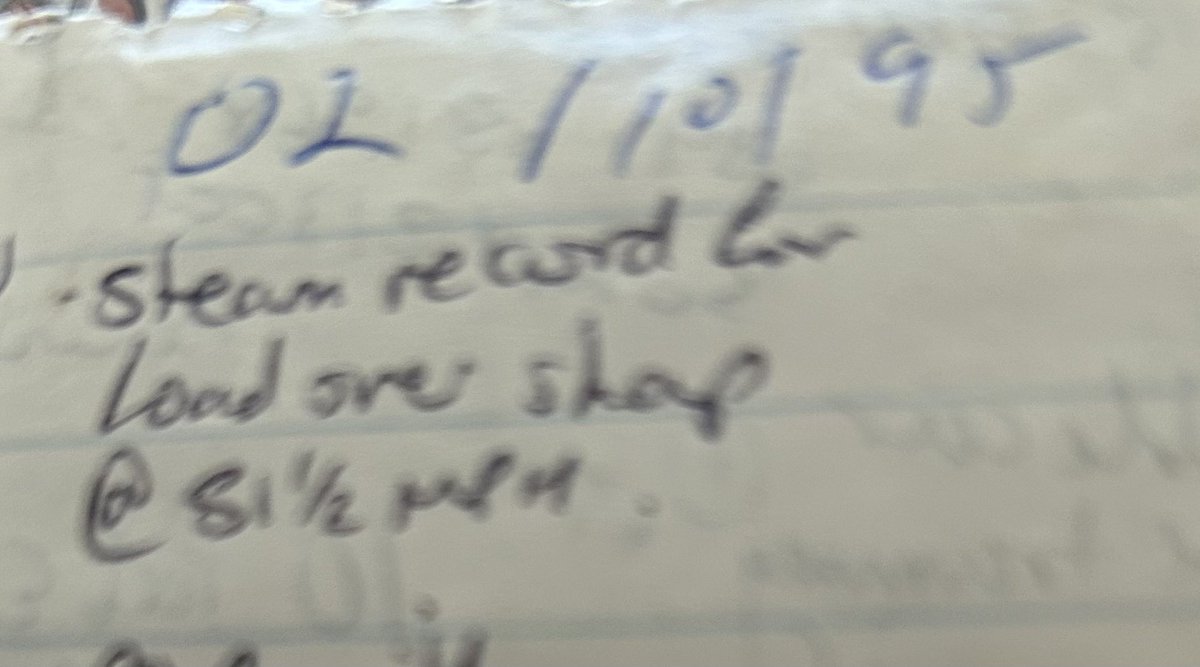 02/10/95
· Steam record for
Load over shap
@ 51 1/2 MPH.